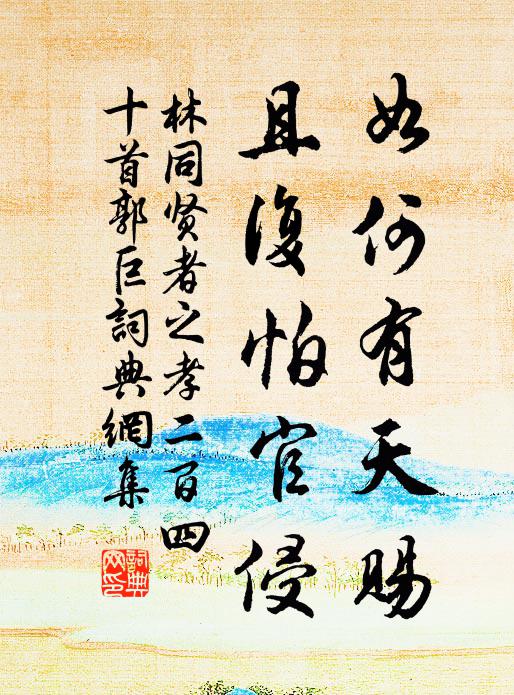 如何有天賜
且復怕官侵
林同贤者之孝二百四
十首郭巨詞典網集